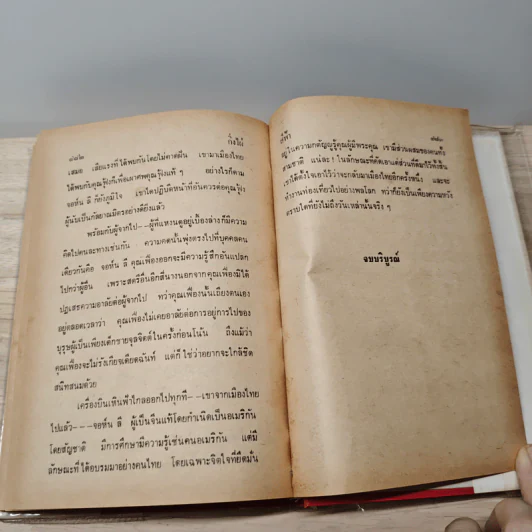 ๘๘๒
กิ่งไผ่
เสมอ เสียแรงที่ได้พบกันโดยไม่คาดฝัน เขามาเมืองไทย
ได้พบกับคุณรุ้งก็เพื่อมาศพคุณรุ้งแท้ ๆ อย่างไรก็ตาม
จอห์น ลี ก็ยังภูมิใจ เขาใคร่ปฏิบัติหน้าที่อันควรต่อคุณรุ้ง
ผู้นับเป็นกัลยาณมิตรอย่างดียิ่งแล้ว
พร้อมกับผู้จากไป--ผู้ที่แหงนดูอยู่เบื้องล่างก็มีความ
คิดไปคนละทางเช่นกัน ความคิดนั้นพุ่งตรงไปที่บุคคลคน
เดียวกันคือ จอห์น ลี คุณเฟื่องออกจะมีความรู้สึกอ่อนแปลก
ไปกว่าผู้อื่น เพราะสตรีอื่นอีกสี่นางนอกจากคุณเฟื่องมิได้
ปฏิเสธความอาลัยต่อผู้จากไป ทว่าคุณเฟื่องนั้นเถียงตนเอง
อยู่ตลอดเวลาว่า คุณเฟื่องไม่เคยอาลัยต่อการอยู่การไปของ
บุรุษผู้เป็นเพียงเด็กชายจุลจิตต์ในครั้งก่อนโน้น ถึงแม้ว่า
คุณเฟื่องจะไม่รังเกียจเดียดฉันท์ แต่ก็ใช่ว่าอยากจะใกล้ชิด
สนิทสนมด้วย
เครื่องบินเหินฟ้าไกลออกไปทุกที--เขาจากเมืองไทย
ไปแล้ว---จอห์น ลี ผู้เป็นจีนแท้โดยกำเนิดเป็นอเมริกัน
โดยสัญชาติ มีการศึกษามีความรู้เช่นคนอเมริกัน แต่มี
ลักษณะที่ได้อบรมมาอย่างคนไทย โดยเฉพาะจิตใจที่ยึดมั่น
สี่ฟ้า
๘๘๓
อยู่ในความกตัญญูรู้คุณผู้มีพระคุณ เขามีส่วนผสมของคนทั้ง
สามชาติ แน่ละ! ในลักษณะที่คัดเอาแต่ส่วนที่ดีมาไว้ทั้งสิ้น
เขาได้ตั้งใจเอาไว้ว่าจะกลับมาเมืองไทยอีกครั้งหนึ่ง และจะ
ทำงานท่องเที่ยวไปอย่างพลโลก ทว่าก็ยังเป็นเพียงความหวัง
ตราบใดที่ยังไม่ถึงวันเหล่านั้นจริง ๆ
จบบริบูรณ์